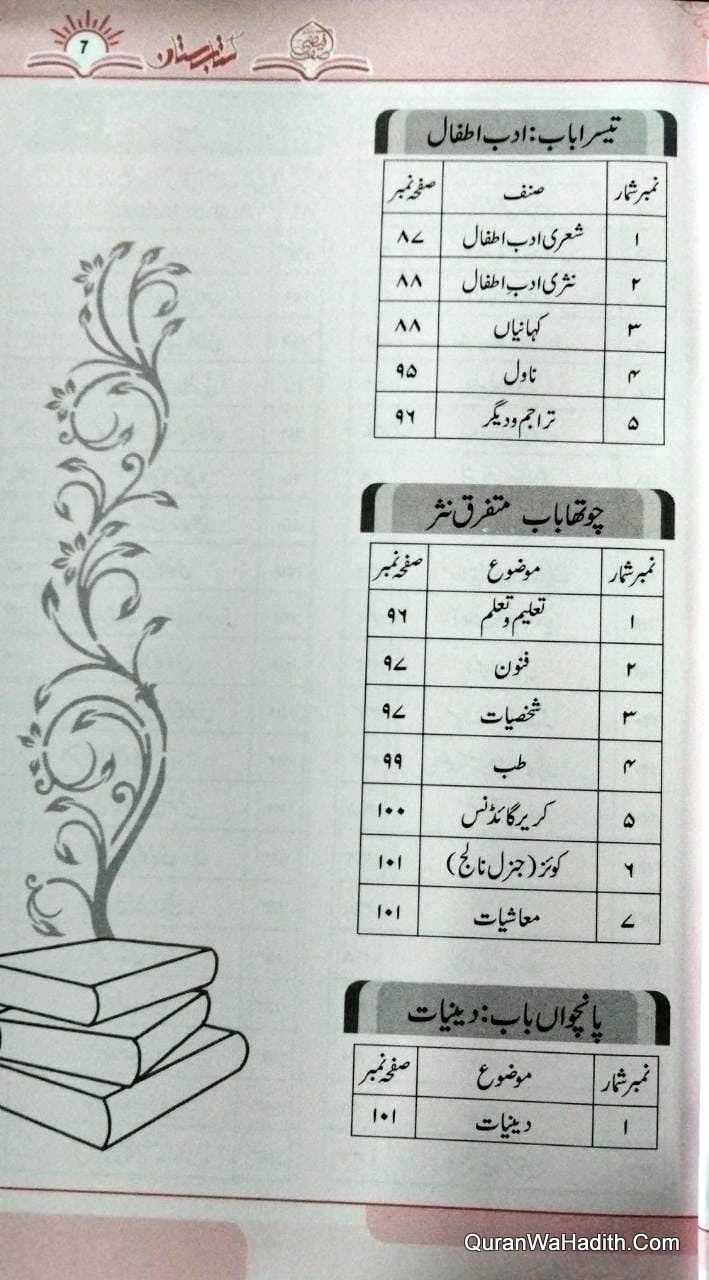 کتابستان
7
تیسرا باب: ادب اطفال
نمبر شمار صنف صفحہ نمبر
۱ شعری ادب اطفال ۸۷
۲ نثری ادبِ اطفال ۸۸
۳ کہانیاں ۸۸
۴ ناول ۹۵
۵ تراجم و دیگر ۹۶
چوتھا باب متفرق نثر
نمبر شمار موضوع صفحہ نمبر
۱ تعلیم و تعلم ۹۶
۲ فنون ۹۷
۳ شخصیات ۹۷
۴ طب ۹۹
۵ کریر گائڈنس ۱۰۰
۶ کوئز (جنرل نالج) ۱۰۱
۷ معاشیات ۱۰۱
پانچواں باب: دینیات
نمبر شمار موضوع صفحہ نمبر
۱ دینیات ۱۰۱
QuranWaHadith.Com